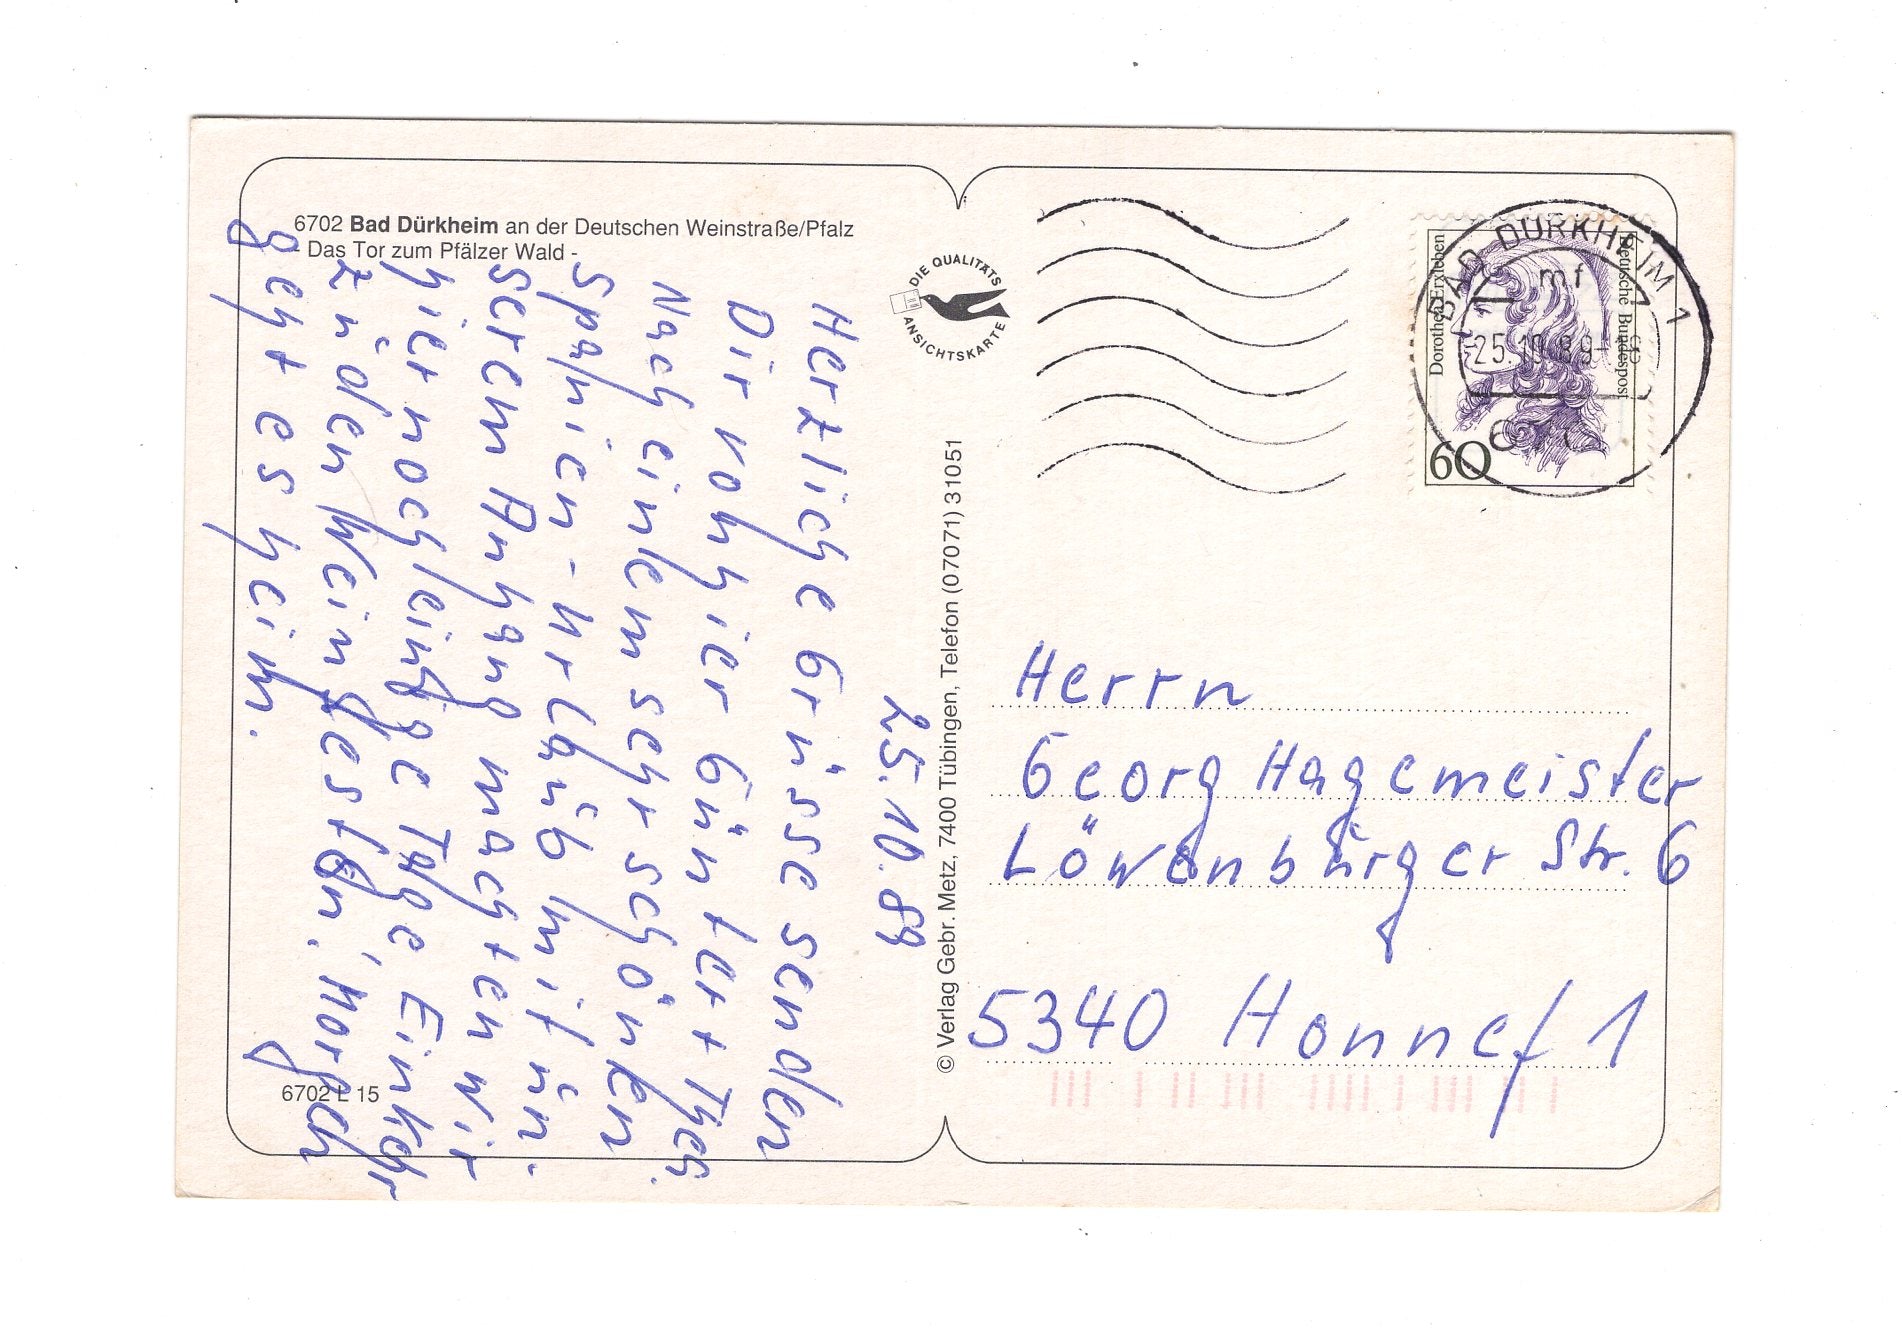 6702 Bad Dürkheim an der Deutschen Weinstraße/Pfalz
- Das Tor zum Pfälzer Wald -
25.10.89
Herzliche Grüsse senden
Dir von hier Günter + Thea.
Nach einem sehr schönen
Spanien-Urlaub mit un-
serem Anhang machten wir
hier noch einige Tage Einkehr
zu den Weinfesten, Morgen
geht es heim.
6702 L 15
DIE QUALITÄTS
ANSICHTSKARTE
© Verlag Gebr. Metz, 7400 Tübingen, Telefon (07071) 31051
BAD DÜRKHEIM 1
mf
25.10.89-
Dorothea Erxleben
Deutsche Bundespost
60
Herrn
Georg Hagemeister
Löwenburger Str. 6
5340 Honnef 1